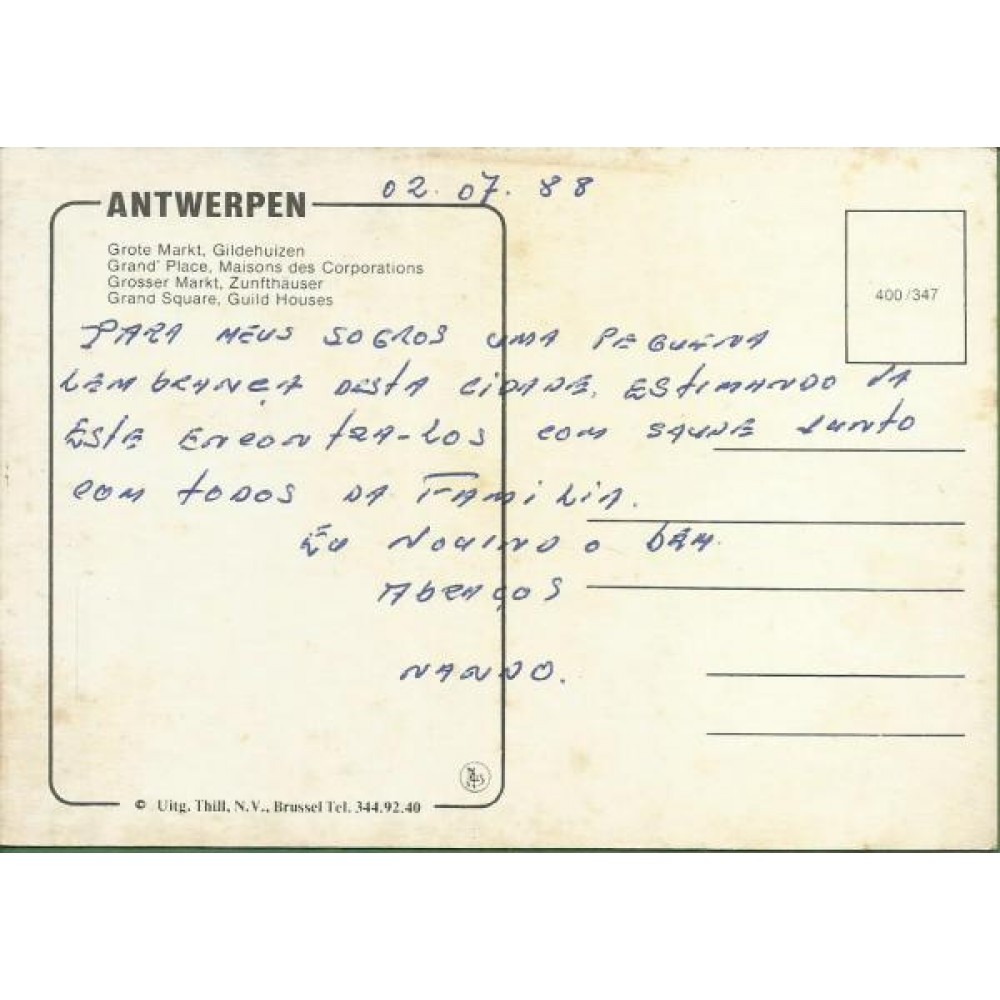 02.07.88
ANTWERPEN
Grote Markt, Gildehuizen
Grand' Place, Maisons des Corporations
Grosser Markt, Zunfthäuser
Grand Square, Guild Houses
400/347
PARA MEUS SOGROS UMA PEQUENA
LEMBRANÇA DESTA CIDADE, ESTIMANDO
ESTE ENCONTRA-LOS COM SAUDE JUNTO
COM TODOS DA FAMILIA.
EU O BEM.
ABRAÇOS
NANDO.
© Uitg. Thill, N.V., Brussel Tel. 344.92.40